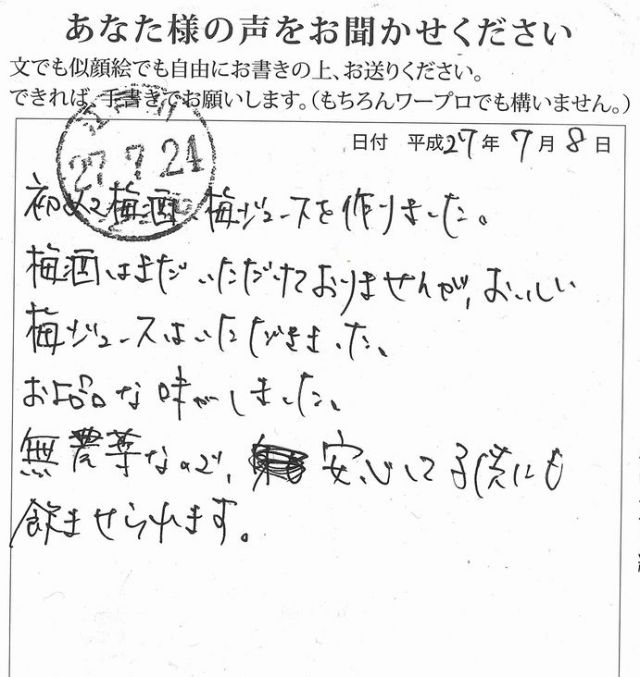 あなた様の声をお聞かせください
文でも似顔絵でも自由にお書きの上、お送りください。
できれば、手書きでお願いします。（もちろんワープロでも構いません。）
日付 平成27年7月8日
27.7.24
初めて梅酒、梅ジュースを作りました。
梅酒はまだいただけておりませんが、おいしい
梅ジュースはいただきました。
お品な味がしました。
無農薬なので、安心して子供にも
飲ませられます。